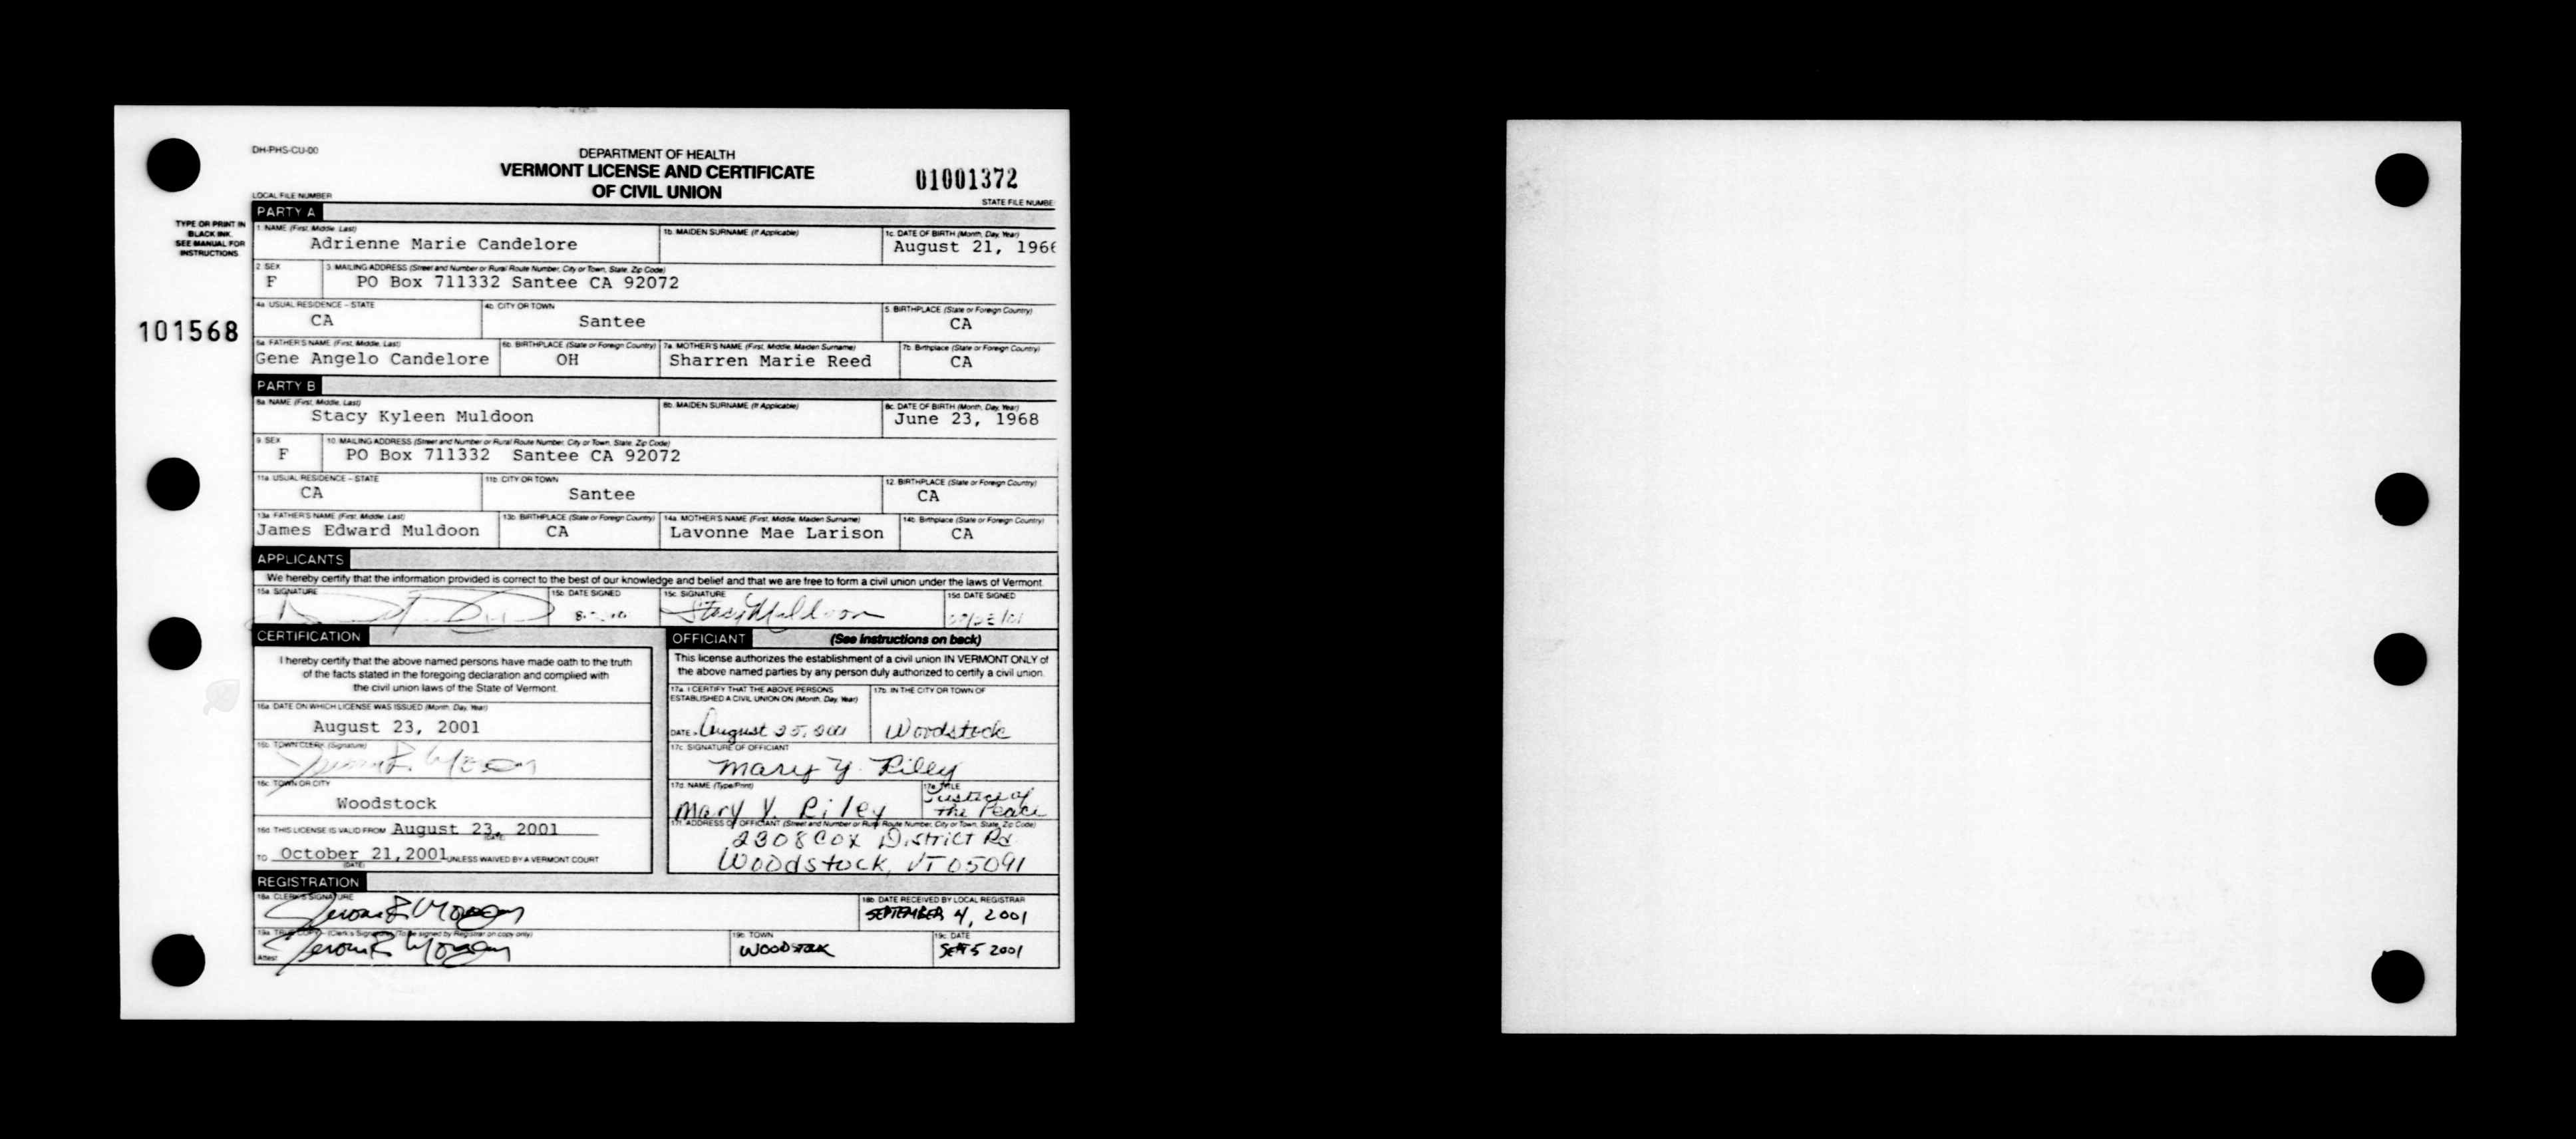 DH-PHS-CU-00
DEPARTMENT OF HEALTH
VERMONT LICENSE AND CERTIFICATE
OF CIVIL UNION
01001372
LOCAL FILE NUMBER
STATE FILE NUMBE
TYPE OR PRINT IN
BLACK INK.
SEE MANUAL FOR
INSTRUCTIONS
101568
PARTY A
1. NAME (First, Middle, Last)
Adrienne Marie Candelore
1b. MAIDEN SURNAME (If Applicable)
1c. DATE OF BIRTH (Month, Day, Year)
August 21, 1966
2. SEX
F
3. MAILING ADDRESS (Street and Number or Rural Route Number, City or Town, State, Zip Code)
PO Box 711332 Santee CA 92072
4a. USUAL RESIDENCE - STATE
CA
4b. CITY OR TOWN
Santee
5. BIRTHPLACE (State or Foreign Country)
CA
6a. FATHER'S NAME (First, Middle, Last)
Gene Angelo Candelore
6b. BIRTHPLACE (State or Foreign Country)
OH
7a. MOTHER'S NAME (First, Middle, Maiden Surname)
Sharren Marie Reed
7b. Birthplace (State or Foreign Country)
CA
PARTY B
8a. NAME (First, Middle, Last)
Stacy Kyleen Muldoon
8b. MAIDEN SURNAME (If Applicable)
8c. DATE OF BIRTH (Month, Day, Year)
June 23, 1968
9. SEX
F
10. MAILING ADDRESS (Street and Number or Rural Route Number, City or Town, State, Zip Code)
PO Box 711332 Santee CA 92072
11a. USUAL RESIDENCE - STATE
CA
11b. CITY OR TOWN
Santee
12. BIRTHPLACE (State or Foreign Country)
CA
13a. FATHER'S NAME (First, Middle, Last)
James Edward Muldoon
13b. BIRTHPLACE (State or Foreign Country)
CA
14a. MOTHER'S NAME (First, Middle, Maiden Surname)
Lavonne Mae Larison
14b. Birthplace (State or Foreign Country)
CA
APPLICANTS
We hereby certify that the information provided is correct to the best of our knowledge and belief and that we are free to form a civil union under the laws of Vermont.
15a. SIGNATURE
15b. DATE SIGNED
15c. SIGNATURE
Stacy Muldoon
15d. DATE SIGNED
CERTIFICATION
I hereby certify that the above named persons have made oath to the truth
of the facts stated in the foregoing declaration and complied with
the civil union laws of the State of Vermont.
16a. DATE ON WHICH LICENSE WAS ISSUED (Month, Day, Year)
August 23, 2001
16b. TOWN CLERK (Signature)
16c. TOWN OR CITY
Woodstock
16d. THIS LICENSE IS VALID FROM August 23, 2001
(DATE)
TO October 21, 2001 UNLESS WAIVED BY A VERMONT COURT
(DATE)
OFFICIANT (See instructions on back)
This license authorizes the establishment of a civil union IN VERMONT ONLY of
the above named parties by any person duly authorized to certify a civil union.
17a. I CERTIFY THAT THE ABOVE PERSONS
ESTABLISHED A CIVIL UNION ON (Month, Day, Year)
DATE August 25, 2001
17b. IN THE CITY OR TOWN OF
Woodstock
17c. SIGNATURE OF OFFICIANT
Mary Y. Riley
17d. NAME (Type/Print)
Mary Y. Riley
17e. TITLE
Justice of
the Peace
17f. ADDRESS OF OFFICIANT (Street and Number or Rural Route Number, City or Town, State, Zip Code)
2308 Cox District Rd.
Woodstock, VT 05091
REGISTRATION
18a. CLERK'S SIGNATURE
18b. DATE RECEIVED BY LOCAL REGISTRAR
SEPTEMBER 4, 2001
19a. TRUE COPY - (Clerk's Signature) (To be signed by Registrar on copy only)
Attest
19b. TOWN
WOODSTOCK
19c. DATE
SEPT 5 2001